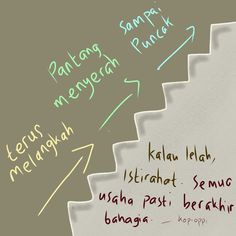 terus
melangkah
Pantang
menyerah
Sampai
Puncak
kalau lelah,
Istirahat. Semua
usaha pasti berakhir
bahagia. _ kopioppi